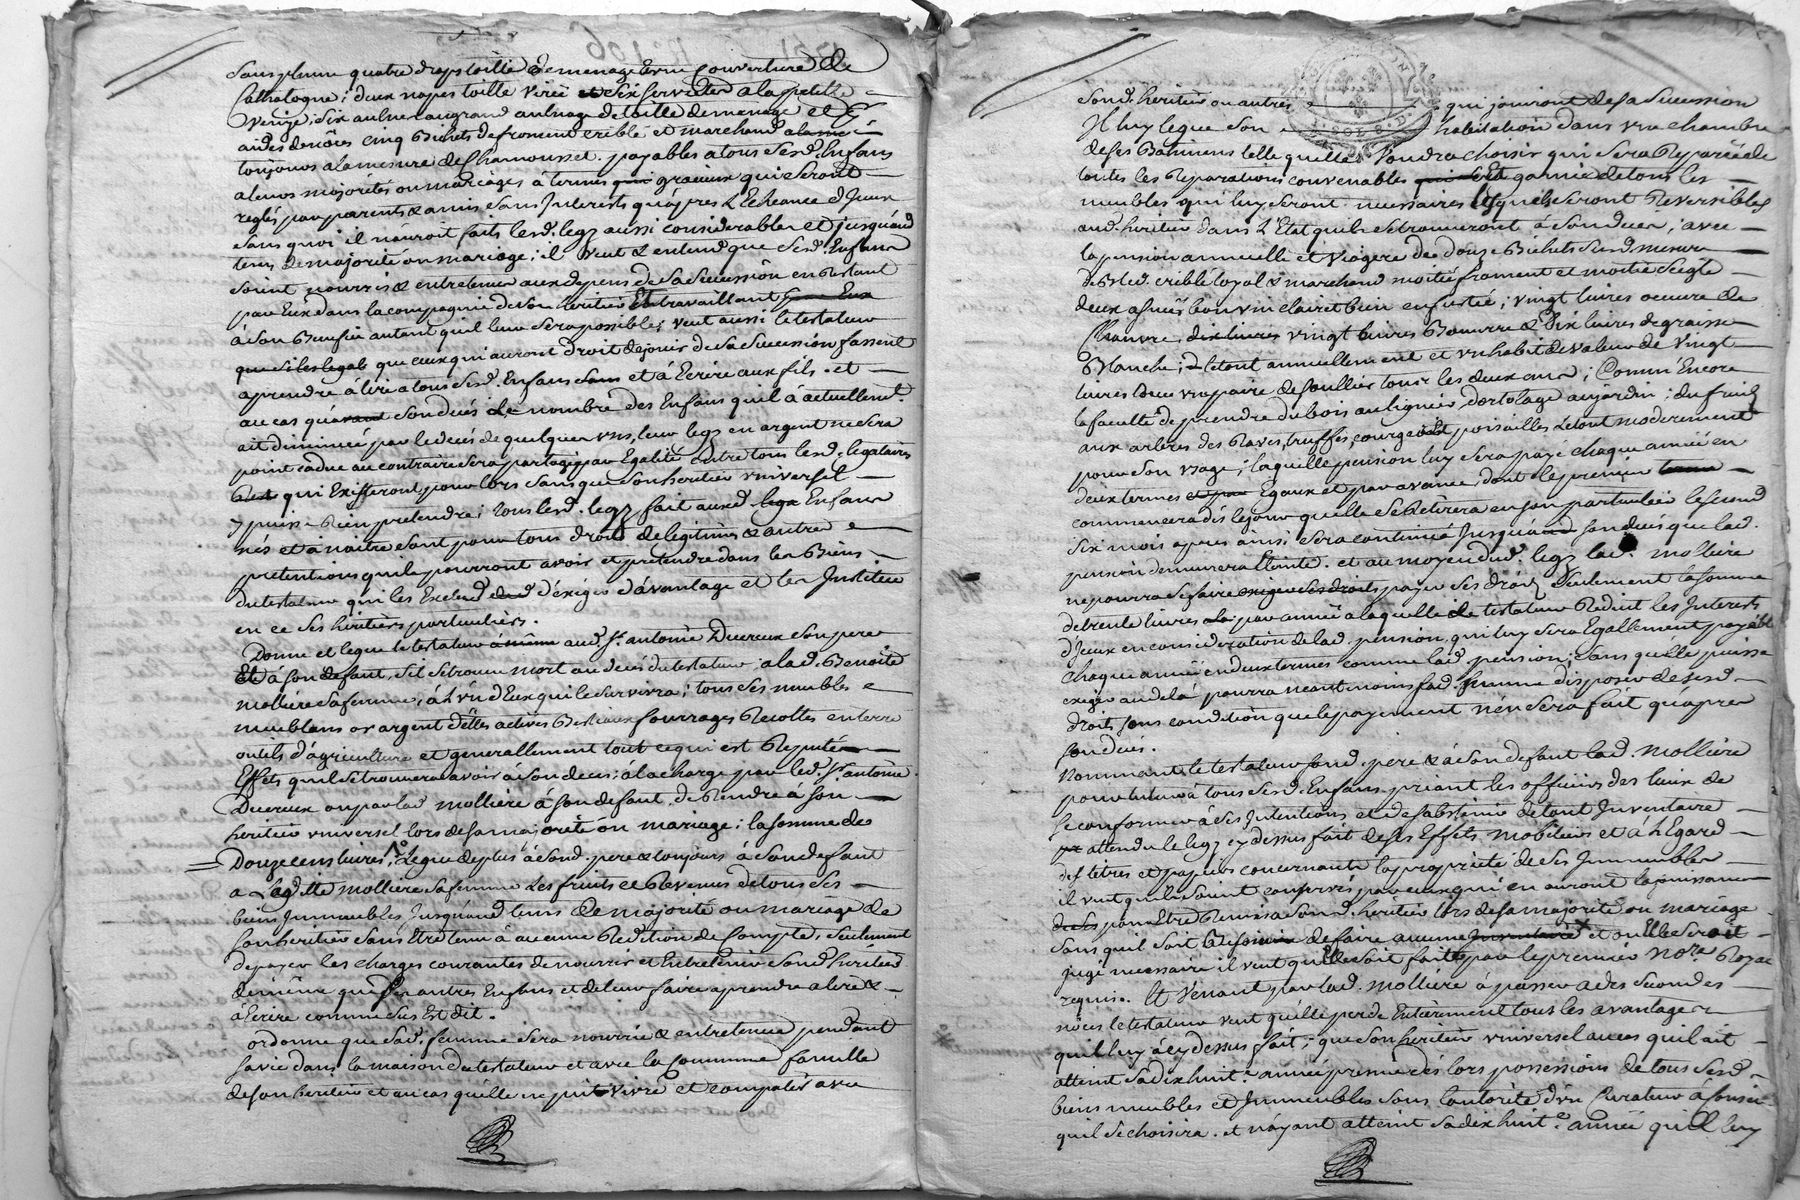 Sans plume quatre draps toille de menage & une couverture de
Cathalogne; deux napes toille virée et six serviettes a la petite
venize, six aulnes au grand aulnage de toille de menage et
cinq Bichets de froment criblé et marchand
toujours a la mesure de Chamousset. payables a tous sesd. Enfans
a leurs majorités ou mariages à termes graicux qui seront
reglés par parents & amis sans Interests qu'apres L'Echeance d'Iceux
sans quoi il n'auroit faits lesd. legz aussi considerables et jusqu'aud.
tems de majorité ou mariage; il veut & entend que sesd. Enfans
soient nourris & entretenus aux depens de sa succession en restant
par Eux dans la compagnie de son heritier Et travaillant pour Eux
à son Benefice autant quil leur sera possible; veut aussi le testateur
que ceux qui auront droit de jouir de sa succession fassent
aprendre à lire a tous sesd. Enfans et à Ecrire aux fils. et
au cas qu'avant son decés le nombre des Enfans quil à actuellemt.
ait diminué par le decés de quelques uns, leur legz en argent ne sera
point caduc au contraire sera partagé par Egalité entre tous lesd. legataires
qui Existeront pour lors sans que son heritier universel
y puisse rien pretendre; tous lesd. legz fait auxd. Enfans
nés et à naitre sont pour tous droits de legitimes & autres
pretentions quils pourront avoir et pretendre dans les Biens
du testateur qui les Exclud d'exiger d'avantage et les Institue
en ce ses heritiers particuliers.
Donne et legue le testateur aud. Sr. antoine Ducreux son pere
Et à son defaut, s'il se trouve mort au decés du testateur, a lad. Benoite
molliere sa femme, à L'un d'Eux qui le survivra; tous ses meubles
meublans or argent dettes actives Bestiaux fourrages Recoltes en terre
outils d'agriculture et generallement tout ce qui est Reputé
Effets quil se trouvera avoir à son decés; à la charge par led. Sr. antoine
Ducreux ou par lad. molliere à son defaut. de Rendre à son
heritier universel lors de sa majorité ou mariage; la somme de
Douze cens livres; Legue de plus à sond. pere & toujours à son defaut
a Ladite molliere sa femme Les fruits et Revenus de tous ses
biens Immeubles Jusqu'aud. tems de majorité ou mariage de
son heritier sans Etre tenu à aucune Redition de Compte, seulement
de payer les charges courantes de nourrir et Entretenir sond. heritier
de même que ses autres Enfans et de leur faire aprendre a lire &
à Ecrire comme sus Est dit.
ordonne que sad. femme sera nourrie & entretenue pendant
sa vie dans la maison du testateur et avec la commune famille
de son heritier et au cas qu'elle ne put vivre et compatir avec
sond. heritier ou autres qui jouiront de sa succession
Il luy legue son habitation dans une chambre
de ses Batimens telle quelle Voudra choisir qui sera Reparée de
toutes les Reparations convenables Et garnie de tous les
meubles qui luy seront necessaires lesquels seront Reversibles
aud. heritier dans L'Etat quils se trouveront à son decés; avec
la pension annuelle et viagere de douze Bichets susd. mesure
de Bled criblé loyal & marchand moitié froment et moitié seigle
deux asnées bon vin clairet bien enfusté; vingt livres oeuvre de
Chanvre, dix livres vingt livres Beurre & dix livres de graisse
Blanche; Le tout annuellement et un habit de valeur de vingt
livres avec une paire de soulliers tous les deux ans; Comm'Encore
la faculté de prendre du bois au lignier, d'ortolage au jardin; du fruit
aux arbres des Raves, truffes, courges et poisailles Le tout moderement
pour son usage; laquelle pension luy sera payé chaque année en
deux termes Egaux et par avance, dont le premier
commencera dés le jour quelle se Retirera en son particulier le second
six mois apres ainsi sera continué Jusqu'à son decés que lad.
pension demeurera Eteinte. et au moyen dud. legz lad. molliere
ne pourra se faire payer ses droits seulement la somme
de trente livres par année a laquelle le testateur Reduit les Interets
d'Iceux en consideration de lad. pension, qui luy sera Egallement payable
chaque année en deux termes comme lad. pension, sans qu'elle puisse
exiger au dela pourra neantmoins sad. femme disposer de sesd.
droits sous condition que le payement n'en sera fait qu'apres
son decés.
Nommant le testateur sond. pere & à son defaut lad. molliere
pour tuteur à tous sesd. Enfans priant les officiers des lieux de
se conformer à ses Intentions et de s'abstenir de tout Inventaire
attendu le legz cy dessus fait de ses Effets mobiliers et à L'Egard
des titres et papiers concernants la proprieté de ses Immeubles
il veut quils soient conservés par ceux qui en auront la jouissance
pour Etre Remis a sond. heritier lors de sa majorité ou mariage
sans quil soit Besoin de faire aucune Inventaire et ou Elle seroit
jugé necessaire il veut qu'Elle soit faite par le premier nore. Royal
requis. Et Venant par lad. molliere à passer a des secondes
nôces le testateur veut qu'elle perde Entierement tous les avantages
quil luy à cy dessus fait; que son heritier universel au cas quil ait
atteint sa dix huit.e année prenne dés lors possession de tous sesd.
biens meubles et Immeubles sous l'autorité d'un Curateur à
quil se choisira. et n'ayant atteint sa dix huit.e année quil luy